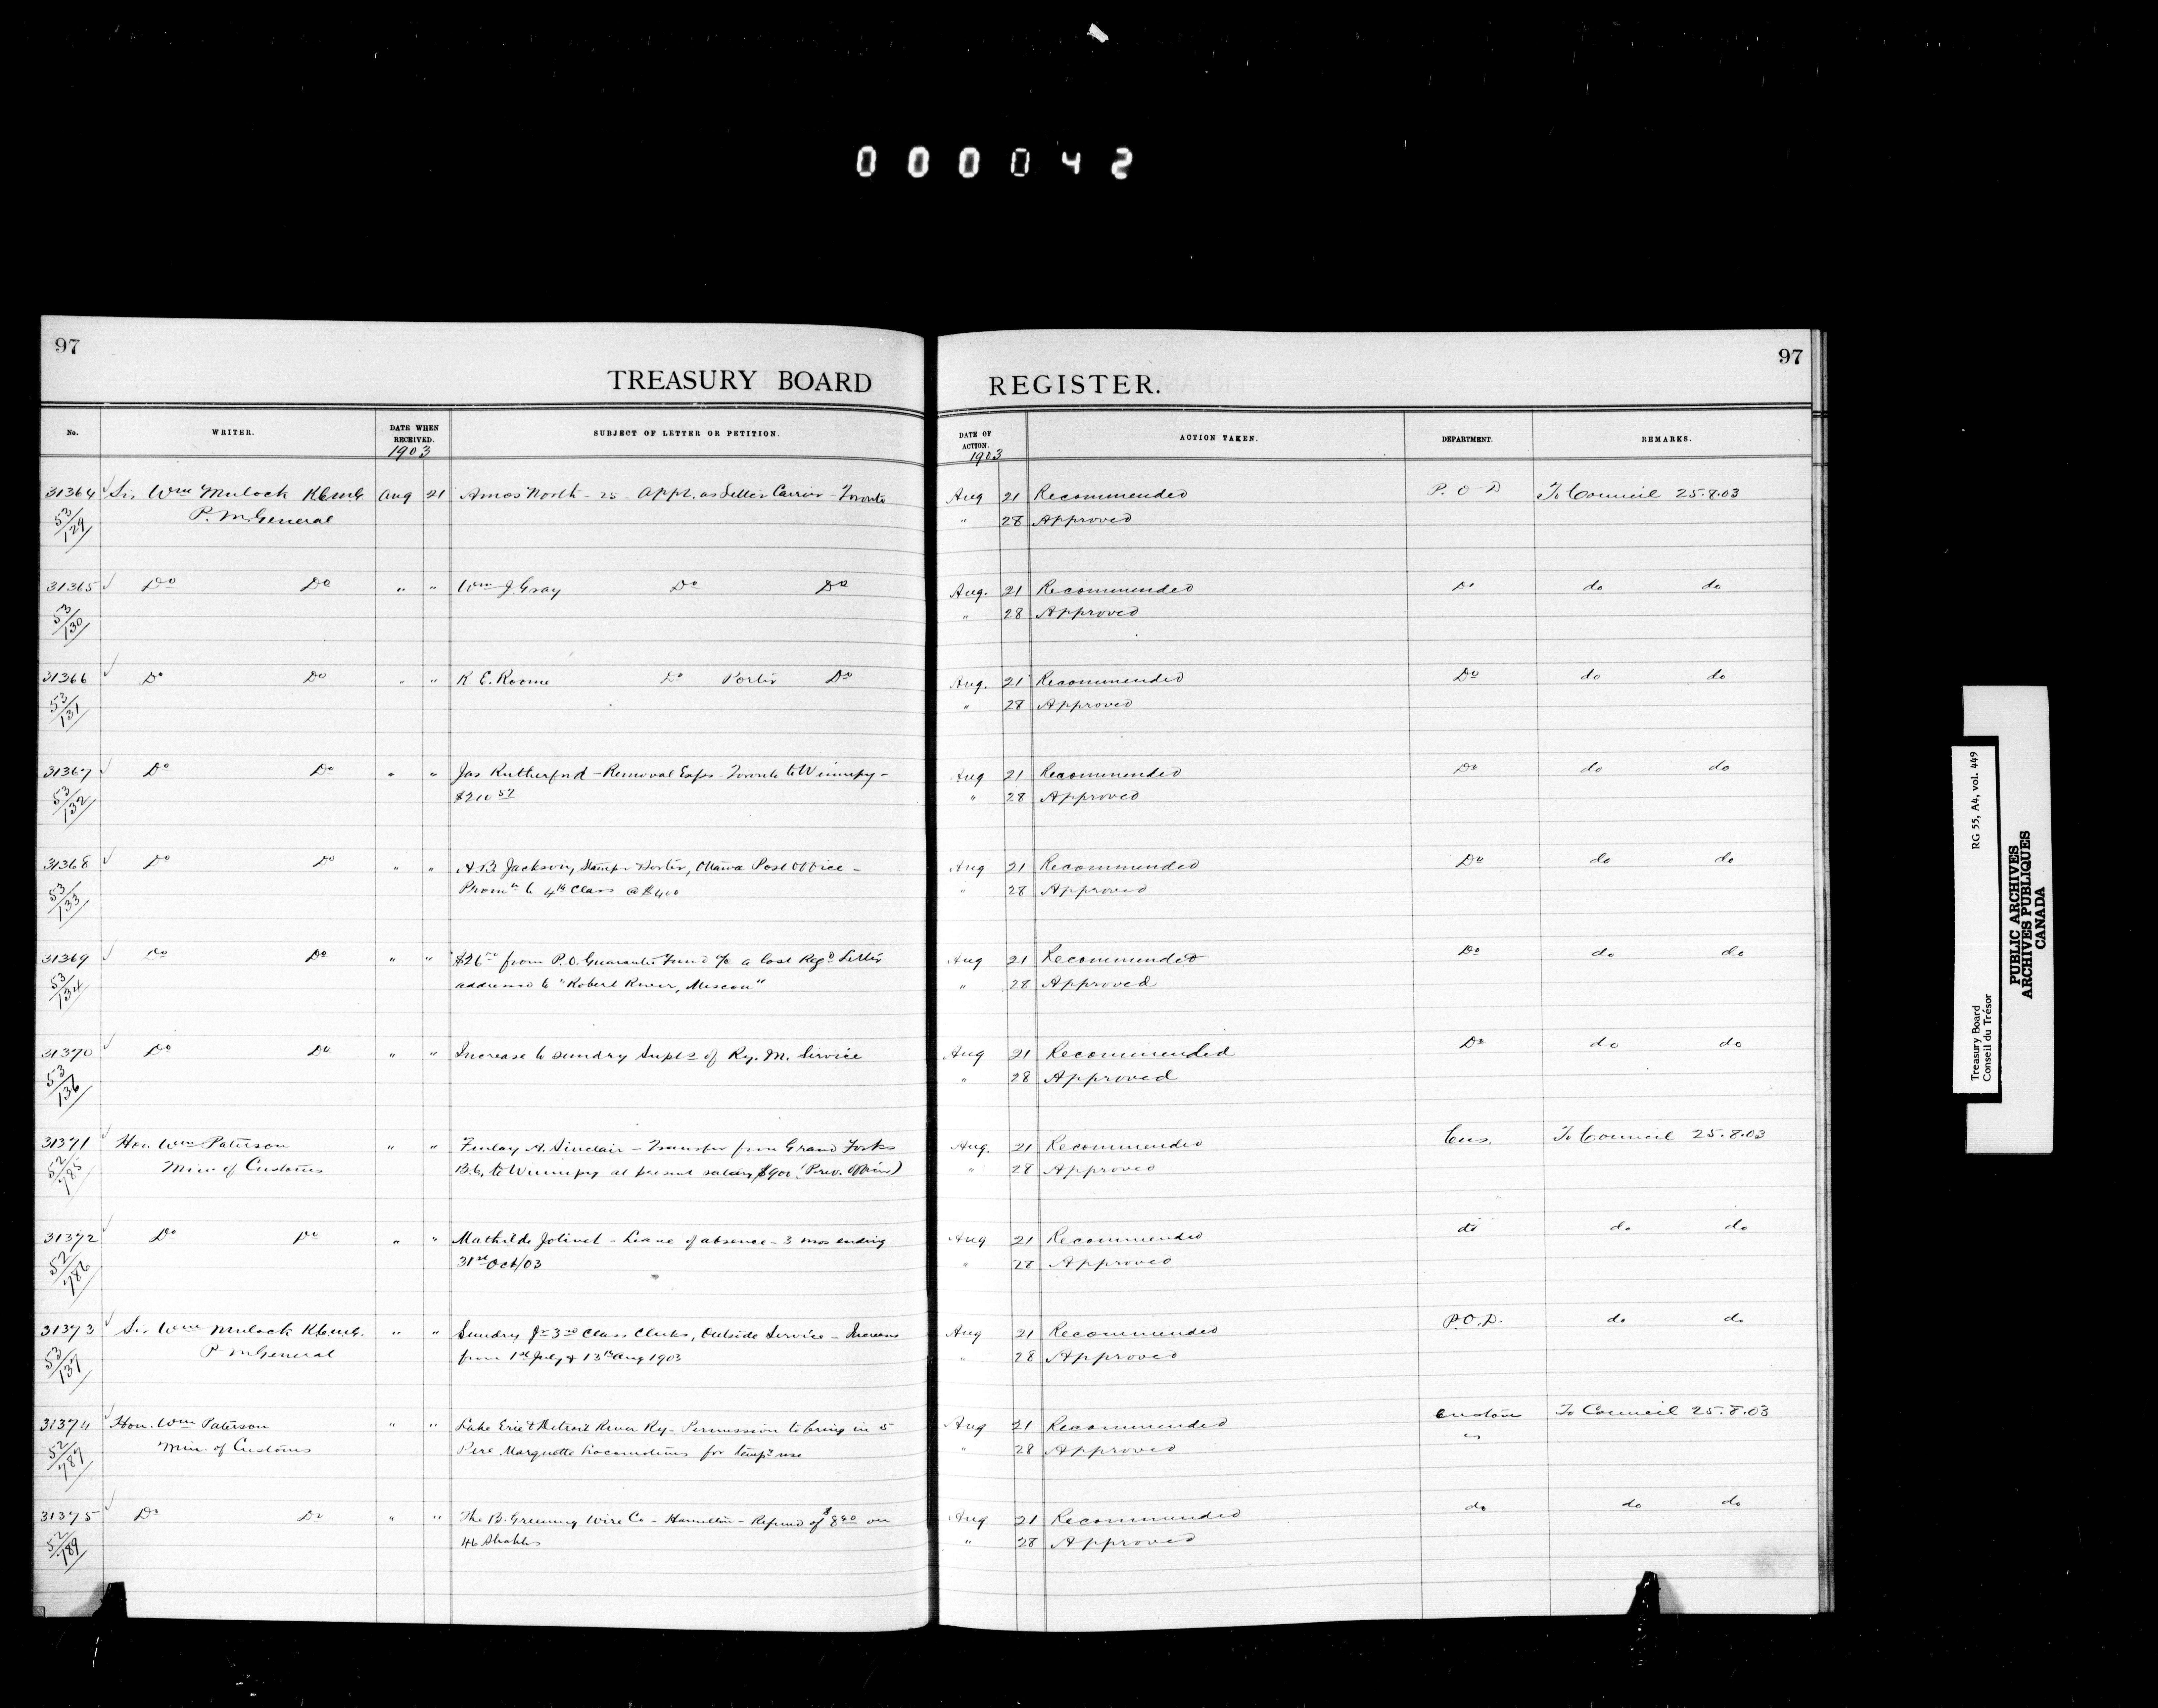 000042
97
97
TREASURY BOARD REGISTER.
No. WRITER. DATE WHEN RECEIVED. 1903 SUBJECT OF LETTER OR PETITION. DATE OF ACTION. 1903 ACTION TAKEN. DEPARTMENT. REMARKS.
31364 Sir Wm Mulock KCMG. Aug 21 Amos North - 25 - Appt. as Letter Carrier - Toronto Aug 21 Recommended P.O.D To Council 25.8.03
53/129 P. M. General " 28 Approved
31365 Do Do " " Wm J. Gray Do Do Aug. 21 Recommended Do do do
53/130 " 28 Approved
31366 Do Do " " R. E. Roome Do Porter Do Aug. 21 Recommended Do do do
53/131 " 28 Approved
31367 Do Do " " Jas Rutherford - Removal Exps - Toronto to Winnipeg - Aug 21 Recommended Do do do
53/132 $210 57 " 28 Approved
31368 Do Do " " A.B. Jackson, Stamper & Sorter, Ottawa Post Office - Aug 21 Recommended Do do do
53/133 Promn to 4th Class @ $400 " 28 Approved
31369 Do Do " " $26 from P.O. Guarantee Fund a/c a lost Regd Letter Aug 21 Recommended Do do do
53/134 addressed to "Robert River, Miscou" " 28 Approved
31370 Do Do " " Increase to sundry Supts of Ry. M. Service Aug 21 Recommended Do do do
53/136 " 28 Approved
31371 Hon. Wm Paterson " " Finlay A. Sinclair - Transfer from Grand Forks Aug. 21 Recommended Cus. To Council 25.8.03
52/785 Min of Customs B.C. to Winnipeg at present salary $900 (Prev. Officer) " 28 Approved
31372 Do Do " " Mathilde Jolivet - Leave of absence - 3 mos ending Aug 21 Recommended do do do
52/786 31st Oct/03 " 28 Approved
31373 Sir Wm Mulock KCMG. " " Sundry Jr 3rd Class Clerks, Outside Service - Increases Aug 21 Recommended P.O.D. do do
53/137 P M General from 1st July & 13th Aug 1903 " 28 Approved
31374 Hon. Wm Paterson " " Lake Erie & Detroit River Ry - Permission to bring in 5 Aug 21 Recommended Customs To Council 25.8.03
52/787 Min. of Customs Pere Marquette Locomotives for tempy use " 28 Approved "
31375 Do Do " " The B. Greening Wire Co - Hamilton - Refund of $8 40 on Aug 21 Recommended do do do
52/789 " 28 Approved
Treasury Board RG 55, A4, vol. 449
Conseil du Trésor
PUBLIC ARCHIVES
ARCHIVES PUBLIQUES
CANADA